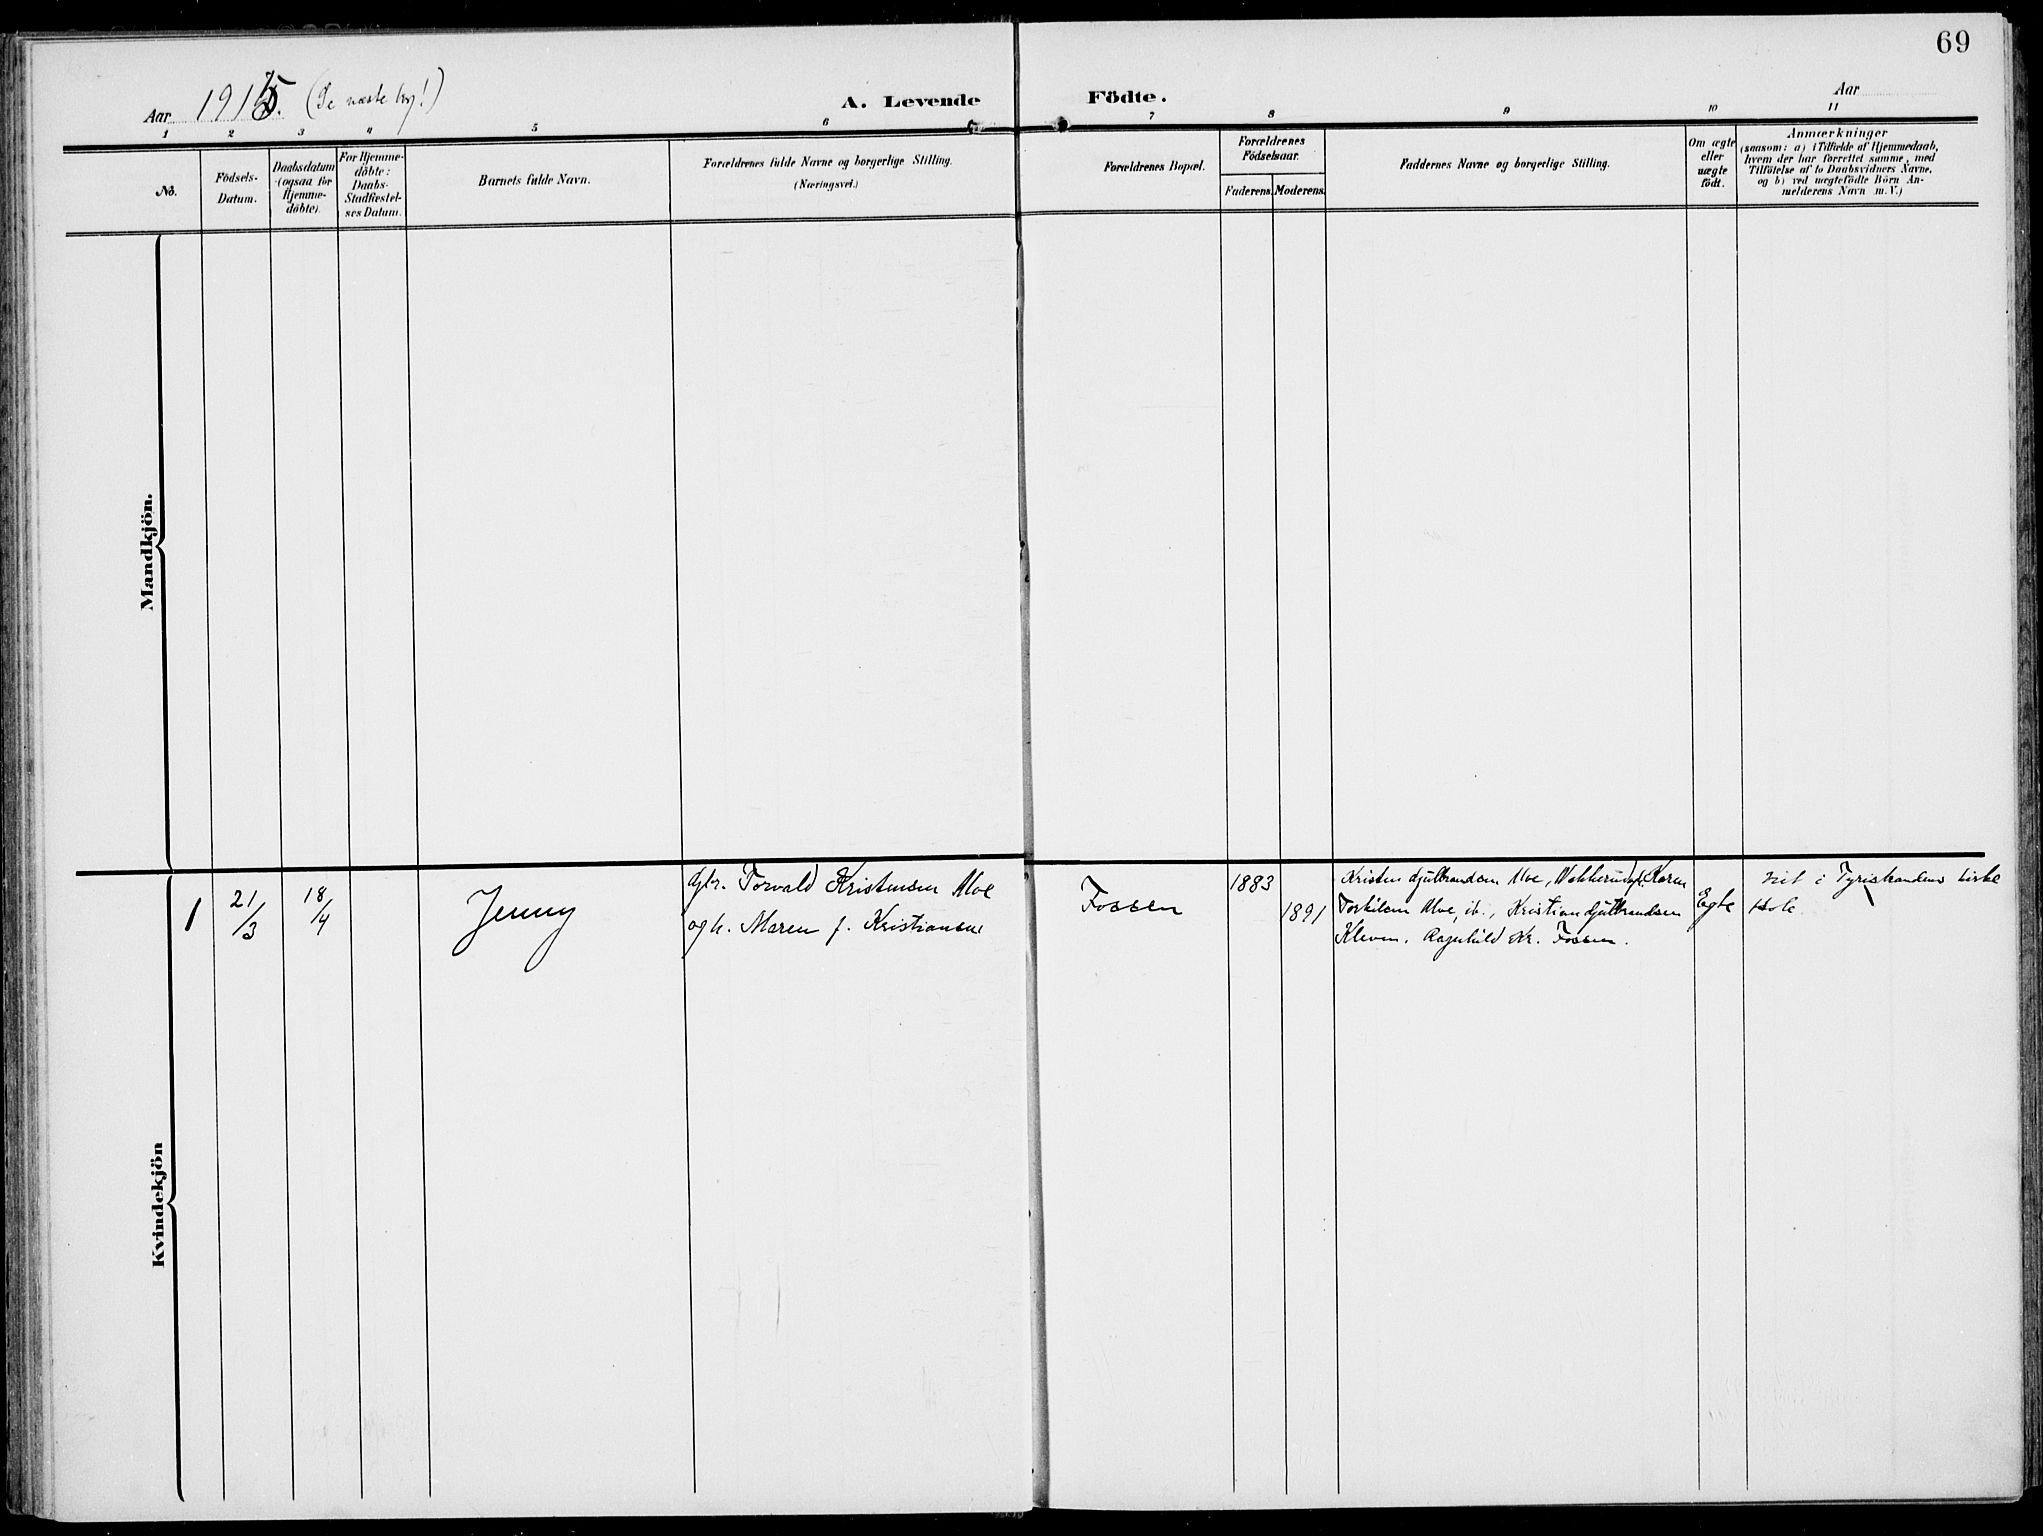 69
Aar 1915. (Se næste bog!)
A. Levende Födte.
Aar
1 2 3 4 5 6 7 8 9 10 11
No.
Födsels-
Datum.
Daabsdatum
(ogsaa for
Hjemme-
döbte).
For Hjemme-
döbte:
Daabs-
Stadfæstel-
ses Datum.
Barnets fulde Navn.
Forældrenes fulde Navne og borgerlige Stilling.
(Næringsvei.)
Forældrenes Bopæl.
Forældrenes
Födselsaar.
Faderens. Moderens.
Faddernes Navne og borgerlige Stilling.
Om ægte
eller
uægte
födt.
Anmærkninger
(saasom: a) i Tilfælde af Hjemmedaab,
hvem der har forrettet samme, med
Tilföielse af to Daabsvidners Navne,
og b) ved uægtefödte Börn An-
melderens Navn m. V.)
Mandkjön.
Kvindekjön
1
21/3
18/4
Jenny
Gbr. Torvald Kristensen Moe
og h. Maren f. Kristiansen
Fossen
1883
1891
Kristen Gulbrandsen Moe, Karen
Torkilsen Moe, ib., Kristian Gulbrandsen
Kleven. Ragnhild Kr. Fossen.
Egte
i Tyristrandens kirke
Hole.